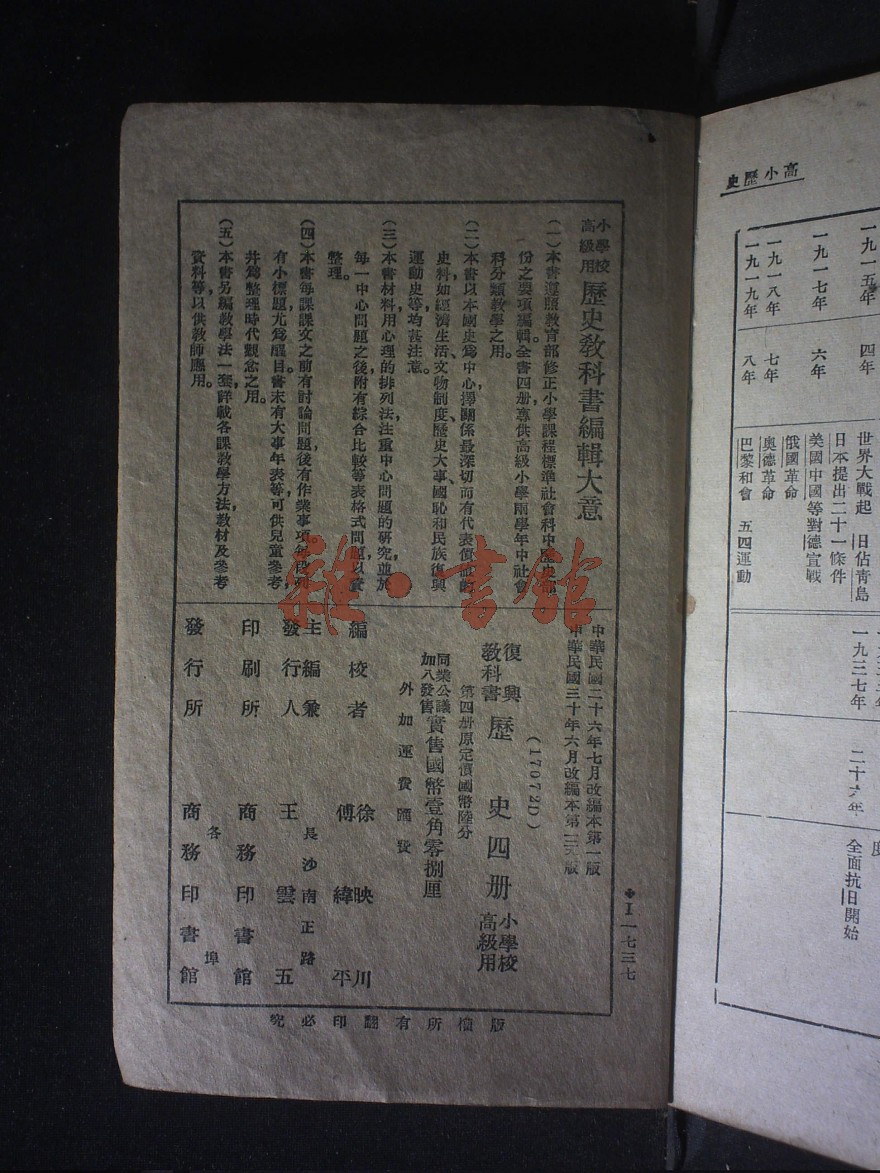 小學校高級用 歷史教科書編輯大意
(一)本書遵照教育部修正小學課程標準社會科中歷史部
份之要項編輯,全書四册,專供高級小學兩學年中社會
科分類教學之用。
(二)本書以本國史爲中心,擇關係最深切而有代表價値的
史料,如經濟生活、文物制度、歷史大事、國恥和民族復興
運動史等,均甚注意。
(三)本書材料用心理的排列法,注重中心問題的研究,並於
每一中心問題之後,附有綜合比較等表格式問題,以資
整理。
(四)本書每課課文之前有討論問題,後有作業事項,每段列
有小標題,尤爲醒目。書末有大事年表等,可供兒童參考,
幷爲整理時代觀念之用。
(五)本書另編教學法一套,詳載各課教學方法,教材及參考
資料等,以供教師應用。
中華民國二十六年七月改編本第一版
中華民國三十年六月改編本第版
(17072D)
復興教科書 歷史四册 小學校高級用
第四册原定價國幣陸分
同業公議加八發售 實售國幣壹角零捌厘
外加運費匯費
編校者 徐映川 傅緯平
主編兼發行人 王雲五
長沙南正路
印刷所 商務印書館
發行所 各埠 商務印書館
版權所有翻印必究
I一七三七
雜·書館
高小歷史
一九一五年 四年 世界大戰起 日佔靑島
日本提出二十一條件
一九一七年 六年 美國中國等對德宣戰
俄國革命
一九一八年 七年 奧德革命
一九一九年 八年 巴黎和會 五四運動
一九三七年 二十六年 全面抗日開始